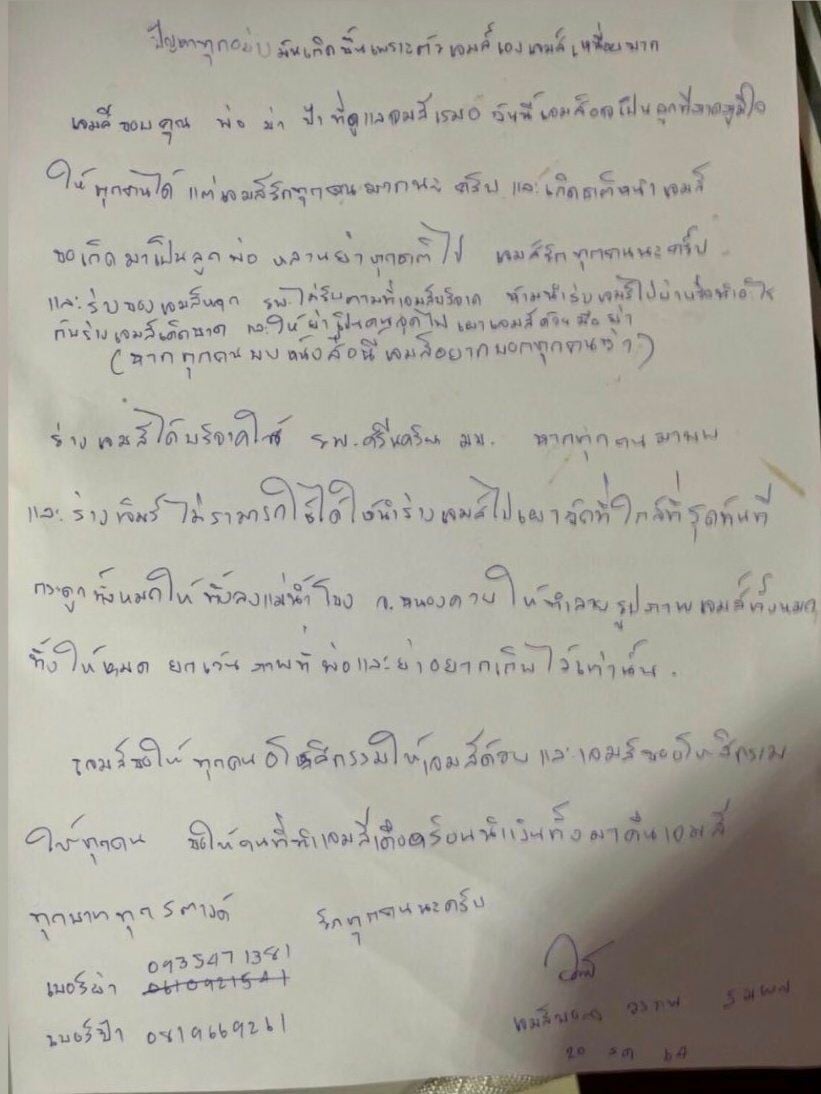 ปัญหาทุกอย่างมันเกิดขึ้นเพราะตัวเจมส์เองเจมส์เหนื่อยมาก
เจมส์ขอบคุณ พ่อ ย่า ป้าที่ดูแลเจมส์เสมอ วันนี้เจมส์อาจเป็นลูกที่ภาคภูมิใจ
ให้ทุกคนได้ แต่เจมส์รักทุกคนมากนะครับ และเกิดชาติหน้าเจมส์
ขอเกิดมาเป็นลูกพ่อ หลานย่าทุกชาติไป เจมส์รักทุกคนนะครับ
และร่างของเจมส์หาก รพ.ไม่รับตามที่เจมส์บริจาค ห้ามนำร่างเจมส์ไปผ่าหรือทำอะไร
กับร่างเจมส์เด็ดขาด และให้ย่าเป็นคนจุดไฟเผาเจมส์ด้วยมือย่า
(หากทุกคนพบหนังสือนี้เจมส์อยากบอกทุกคนว่า)
ร่างเจมส์ได้บริจาคให้ รพ.ศรีนครินทร์ มข. หากทุกคนมาพบ
และร่างเจมส์ไม่สามารถใช้ได้ให้นำร่างเจมส์ไปเผาวัดที่ใกล้ที่สุดทันที
กระดูกทั้งหมดให้ทิ้งลงแม่น้ำโขง จ.หนองคาย ให้ทำลายรูปภาพเจมส์ทั้งหมด
ทิ้งให้หมด ยกเว้นภาพที่พ่อและย่าอยากเก็บไว้เท่านั้น.
เจมส์ขอให้ทุกคนอโหสิกรรมให้เจมส์ด้วย และเจมส์ขออโหสิกรรม
ให้ทุกคน ขอให้คนที่ทำเจมส์เดือดร้อนนำเงินทั้งมาคืนเจมส์
ทุกบาททุกสตางค์ รักทุกคนนะครับ
เบอร์ย่า 0935471381
0610921541
เบอร์ป้า 0819669261
20 64